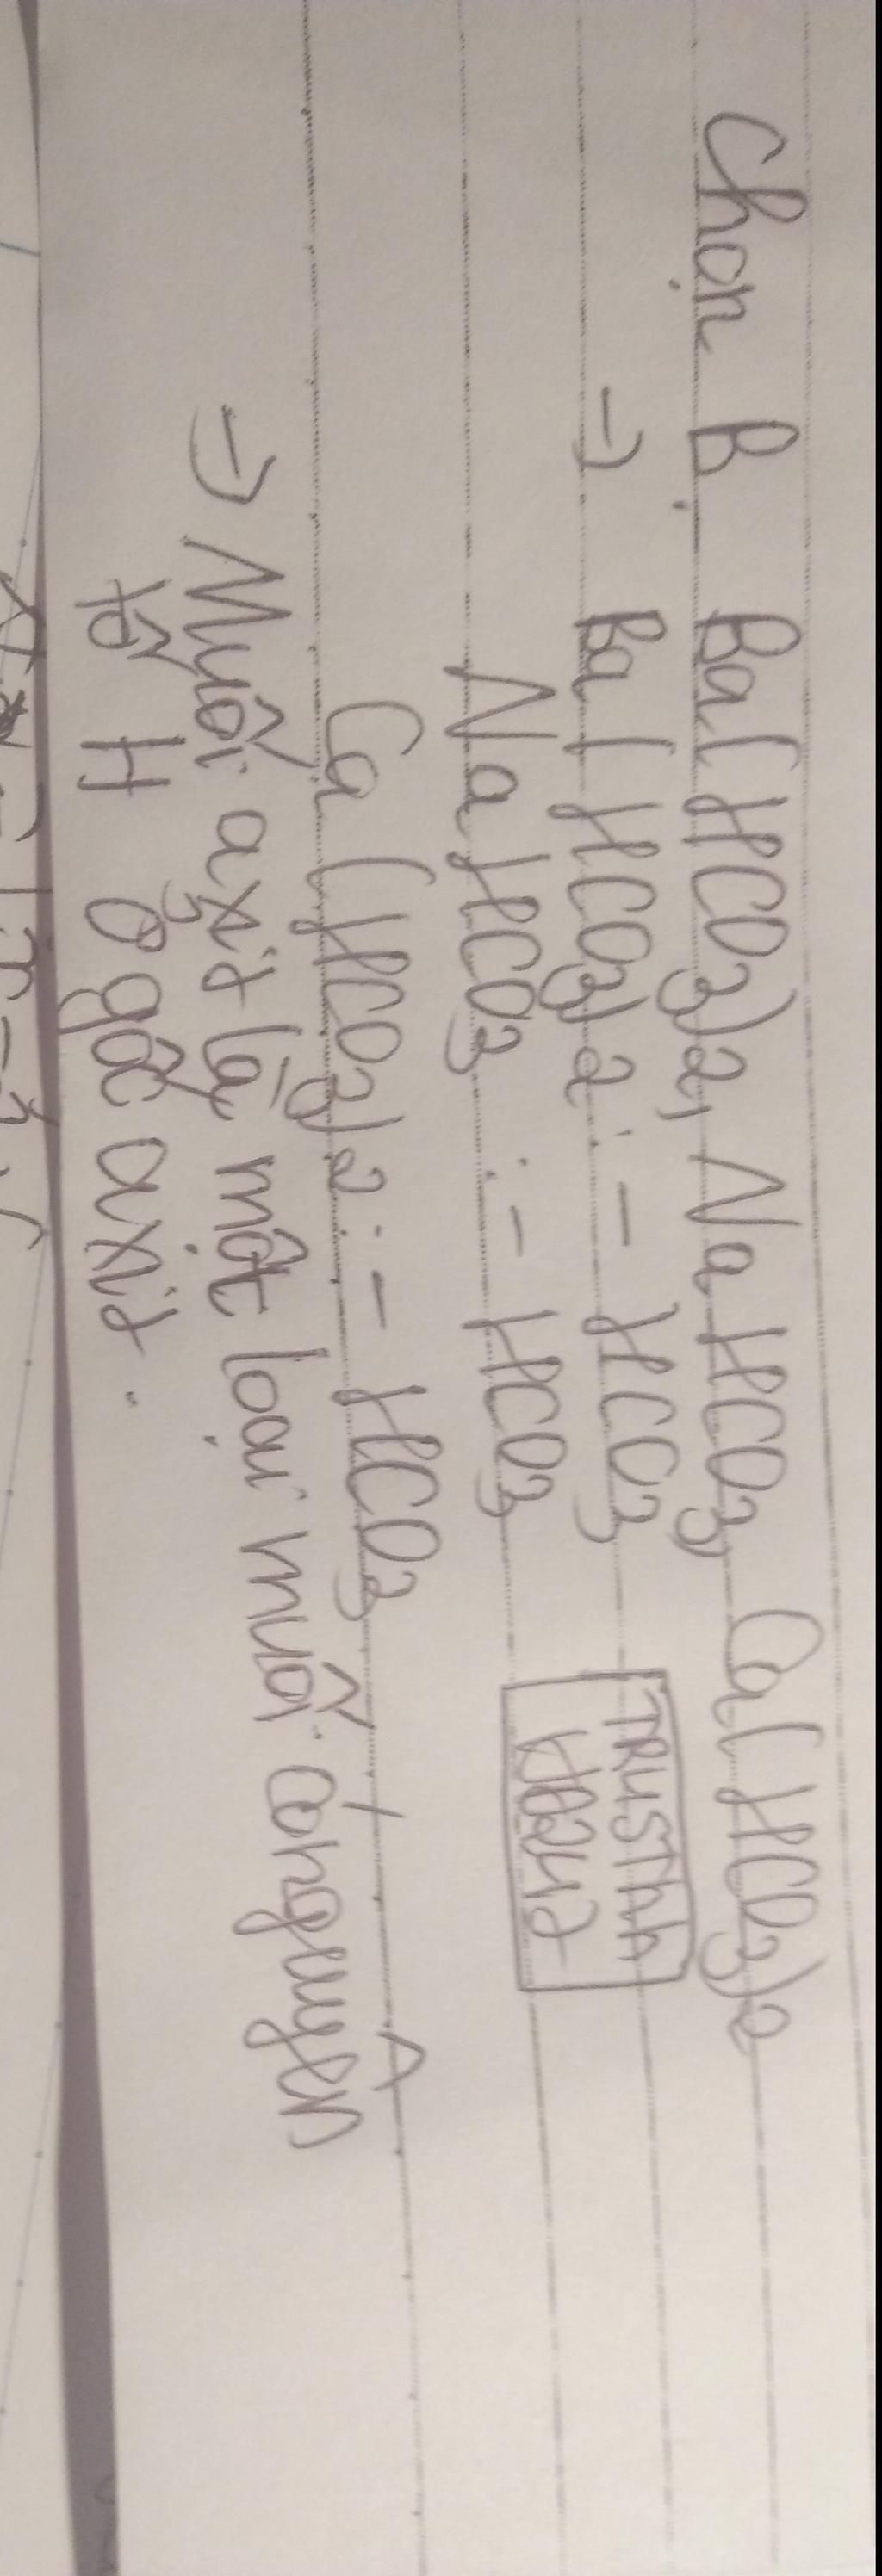 Chọn B. Ba(HCO3)2, NaHCO3, Ca(HCO3)2
→ Ba(HCO3)2: - HCO3
NaHCO3: - HCO3
TRUSThh
Ca(HCO3)2: - HCO3
→ Muối axit là một loại muối có nguyên
tố H ở gốc axit.